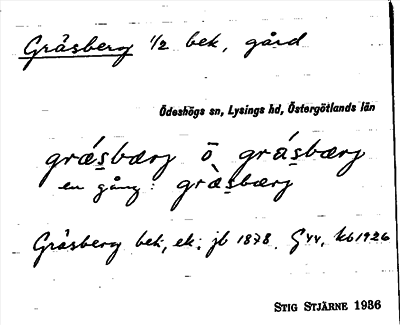 Gräsberg 1/2 bek, gård
Ödeshögs sn, Lysings hd, Östergötlands län
græ´s̲bærj o᷆ grá̈s̲bærj
en gång: græ̀s̲bærj
Gräsberg bek, ek. jb 1878. G vv, kb 1926
STIG STJÄRNE 1936